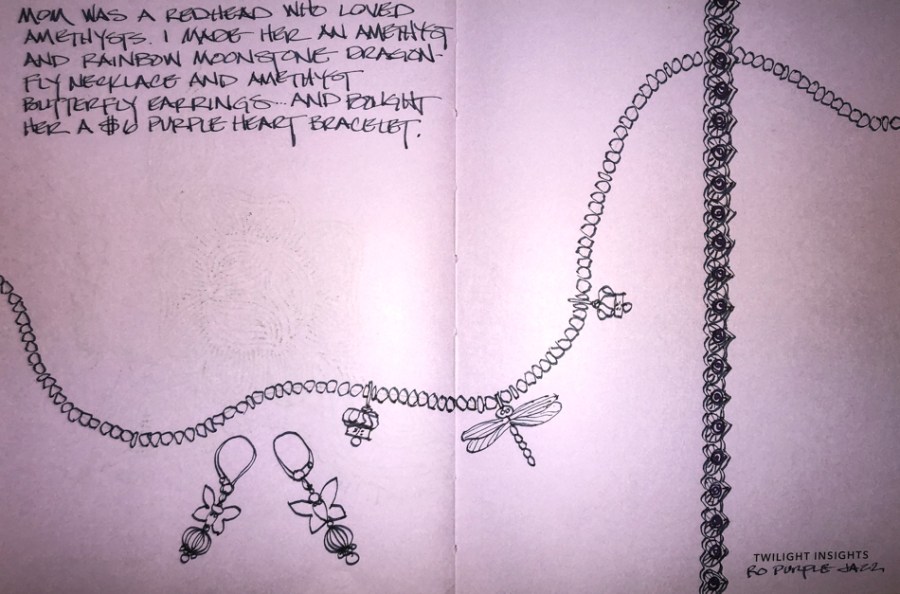 MOM WAS A REDHEAD WHO LOVED
AMETHYSTS. I MADE HER AN AMETHYST
AND RAINBOW MOONSTONE DRAGON-
FLY NECKLACE AND AMETHYST
BUTTERFLY EARRINGS... AND BOUGHT
HER A $6 PURPLE HEART BRACELET.
TWILIGHT INSIGHTS
RO PURPLE JAZZ